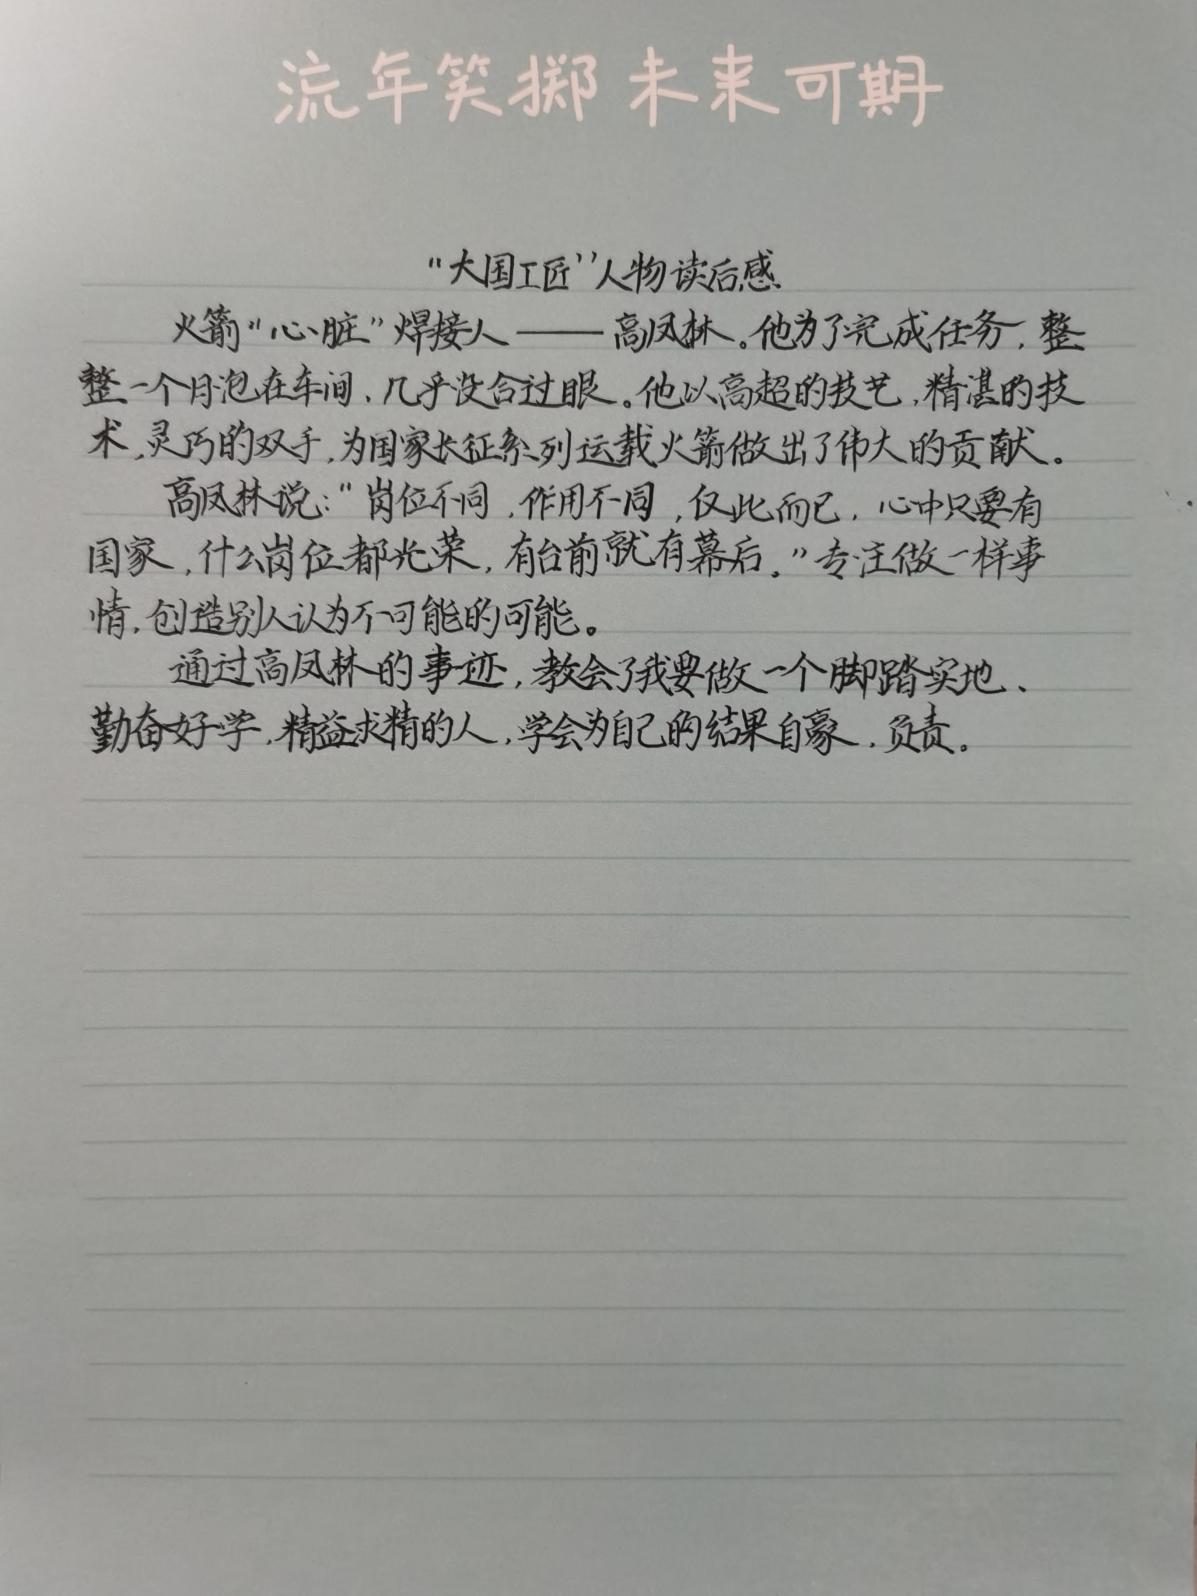 流年笑掷 未来可期
“大国工匠”人物读后感
火箭“心脏”焊接人——高凤林。他为了完成任务，整
整一个月泡在车间，几乎没合过眼。他以高超的技艺，精湛的技
术，灵巧的双手，为国家长征系列运载火箭做出了伟大的贡献。
高凤林说：“岗位不同，作用不同，仅此而已，心中只要有
国家，什么岗位都光荣，有台前就有幕后。”专注做一样事
情，创造别人认为不可能的可能。
通过高凤林的事迹，教会了我要做一个脚踏实地、
勤奋好学，精益求精的人，学会为自己的结果自豪，负责。